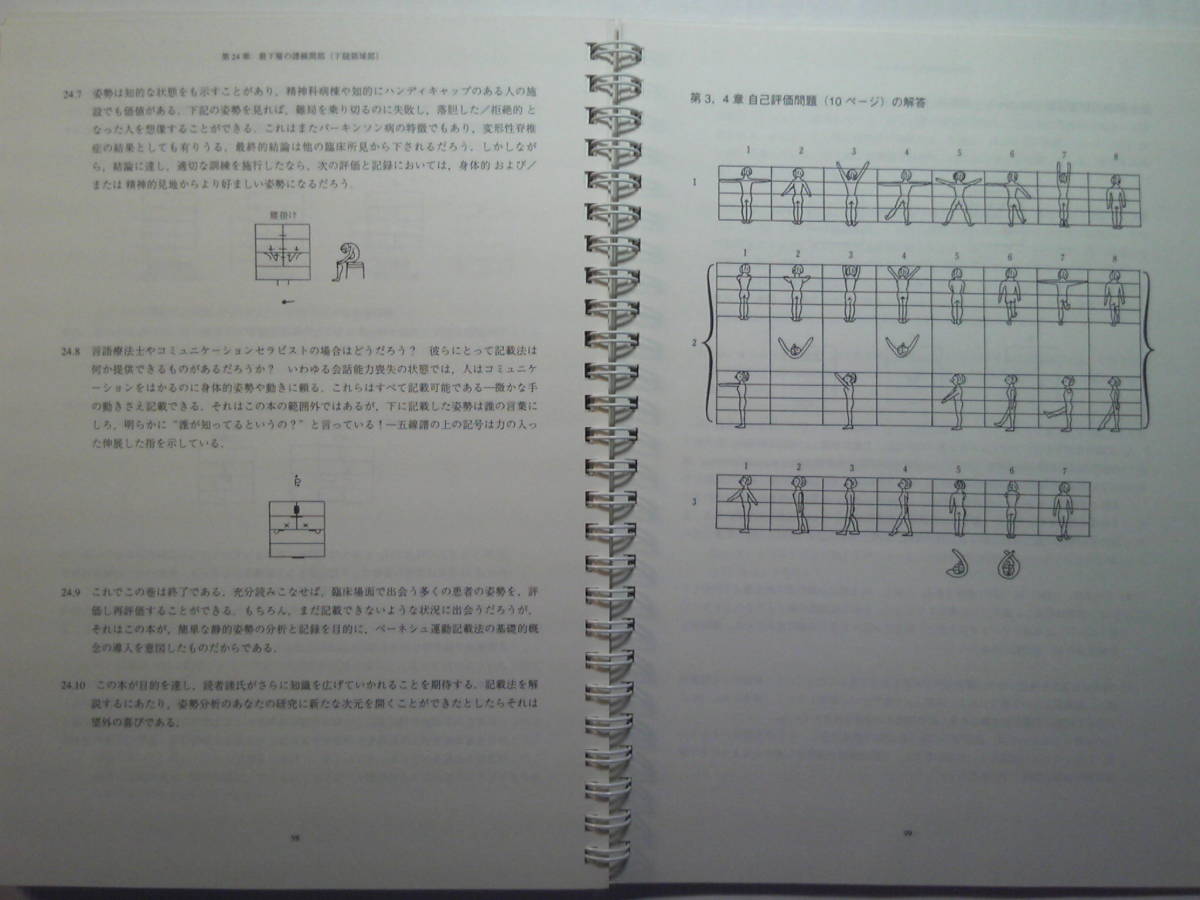 第24章 最下層の譜線間部（下肢領域部）
24.7 姿勢は知的な状態をも示すことがあり，精神科病棟や知的にハンディキャップのある人の施
設でも価値がある．下記の姿勢を見れば，難局を乗り切るのに失敗し，落胆した／拒絶的 と
なった人を想像することができる．これはまたパーキンソン病の特徴でもあり，変形性脊椎
症の結果としても有りうる．最終的結論は他の臨床所見から下されるだろう．しかしなが
ら，結論に達し，適切な訓練を施行したなら，次の評価と記録においては，身体的 および／
または 精神的見地からより好ましい姿勢になるだろう．
腰掛け
24.8 言語療法士やコミュニケーションセラピストの場合はどうだろう？ 彼らにとって記載法は
何か提供できるものがあるだろうか？ いわゆる会話能力喪失の状態では，人はコミュニケ
ーションをはかるのに身体的姿勢や動きに頼る．これらはすべて記載可能である―微かな手
の動きさえ記載できる．それはこの本の範囲外ではあるが，下に記載した姿勢は誰の言葉に
しろ，明らかに “誰が知ってるというの？” と言っている！―五線譜の上の記号は力の入っ
た伸展した指を示している．
24.9 これでこの巻は終了である．充分読みこなせば，臨床場面で出会う多くの患者の姿勢を，評
価し再評価することができる．もちろん，まだ記載できないような状況に出会うだろうが，
それはこの本が，簡単な静的姿勢の分析と記録を目的に，ベーネシュ運動記載法の基礎的概
念の導入を意図したものだからである．
24.10 この本が目的を達し，読者諸氏がさらに知識を広げていかれることを期待する．記載法を解
説するにあたり，姿勢分析のあなたの研究に新たな次元を開くことができたとしたらそれは
望外の喜びである．
98
第3，4章 自己評価問題（10ページ）の解答
1 2 3 4 5 6 7 8
1
1 2 3 4 5 6 7 8
2
1 2 3 4 5 6 7
3
99